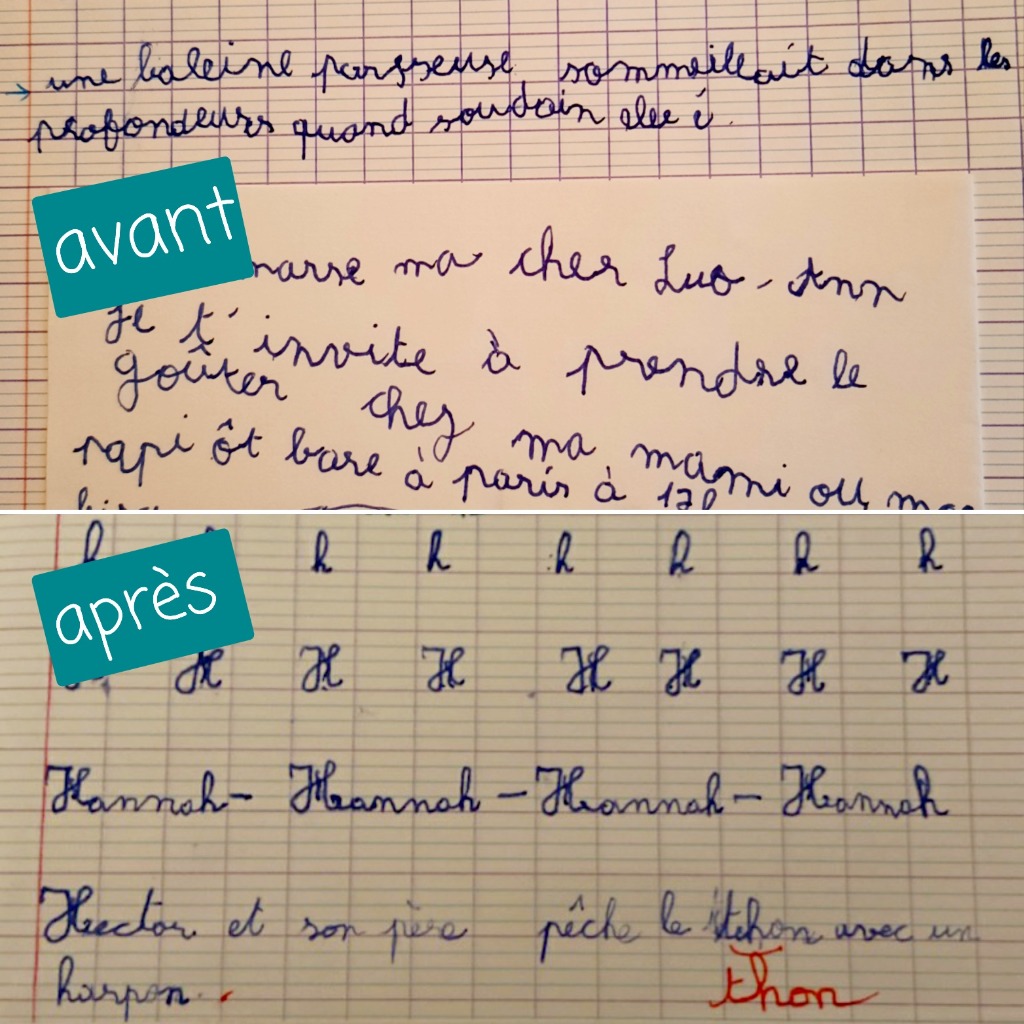 → une baleine paresseuse sommeillait dans les
profondeurs quand soudain elle i.
avant
ma cher Luo-Ann
Je t'invite à prendre le
goûter chez ma mami ou
rapi ôt bare à paris à 17h
après
h h h h h h h
H H H H H H H
Hannah - Heannah - Heannah - Heannah
Hector et son père pêche le thon avec un
harpon.
thon